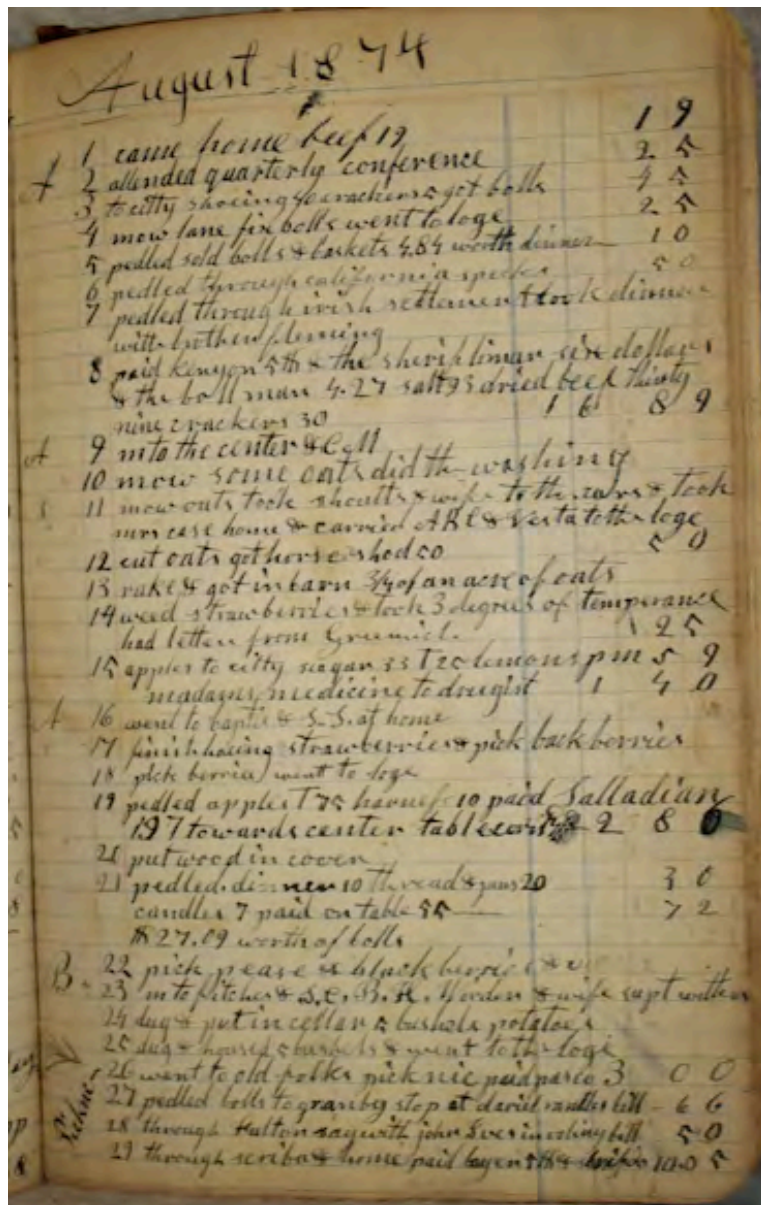 August 1874
1 came home beef 19 19
A 2 attended quarterly conference 25
3 to citty shoeing crackers 5 got bolls 45
4 mow lane fix bolls went to loge 25
5 pedled sold bolls & baskets 4.84 worth dinner 10
6 pedled through california 50
7 pedled through irish settlement took dinner
with brother fleming
8 paid Kenyon 5 & the six dollars
& the boll man 4.27 salt 95 dried beef thirty
nine crackers 30 16 89
A 9 m to the center & Coll
10 mow some oats did the washing
11 mow oats took shoults & wife to the cars & took
mrs case home & carried & Vesta to the loge
12 cut oats got horse shod 50 50
13 rake & got in barn 3/4 of an acre of oats
14 weed strawberries & took 3 degrees of temperance
had letter from 1 25
15 apples to citty sugar 33 T 25 lemons pm 59
madams medicine to drugist 1 40
A 16 went to & S.S. at home
17 finish hoeing strawberries & pick back berries
18 pick berries went to loge
19 pedled apples T 75 harness 10 paid Salladian
197 towards center table 2 80
21 put wood in
21 pedled dinner 10 thread & pans 20 30
candles 7 paid on table 55 72
$27.09 worth of bolls
B 22 pick peare & black berries &
23 m to pitcher & S.C. B.R. Worden & wife supt with us
24 dug & put in cellar 5 bushels potatoes
25 dug & housed 5 bushels & went to the loge
26 went to old folks pick nic paid 3 00
27 pedled bolls to granby stop at david bill - 66
28 through with john Ives bill 50
29 through scriba & home paid 10.05